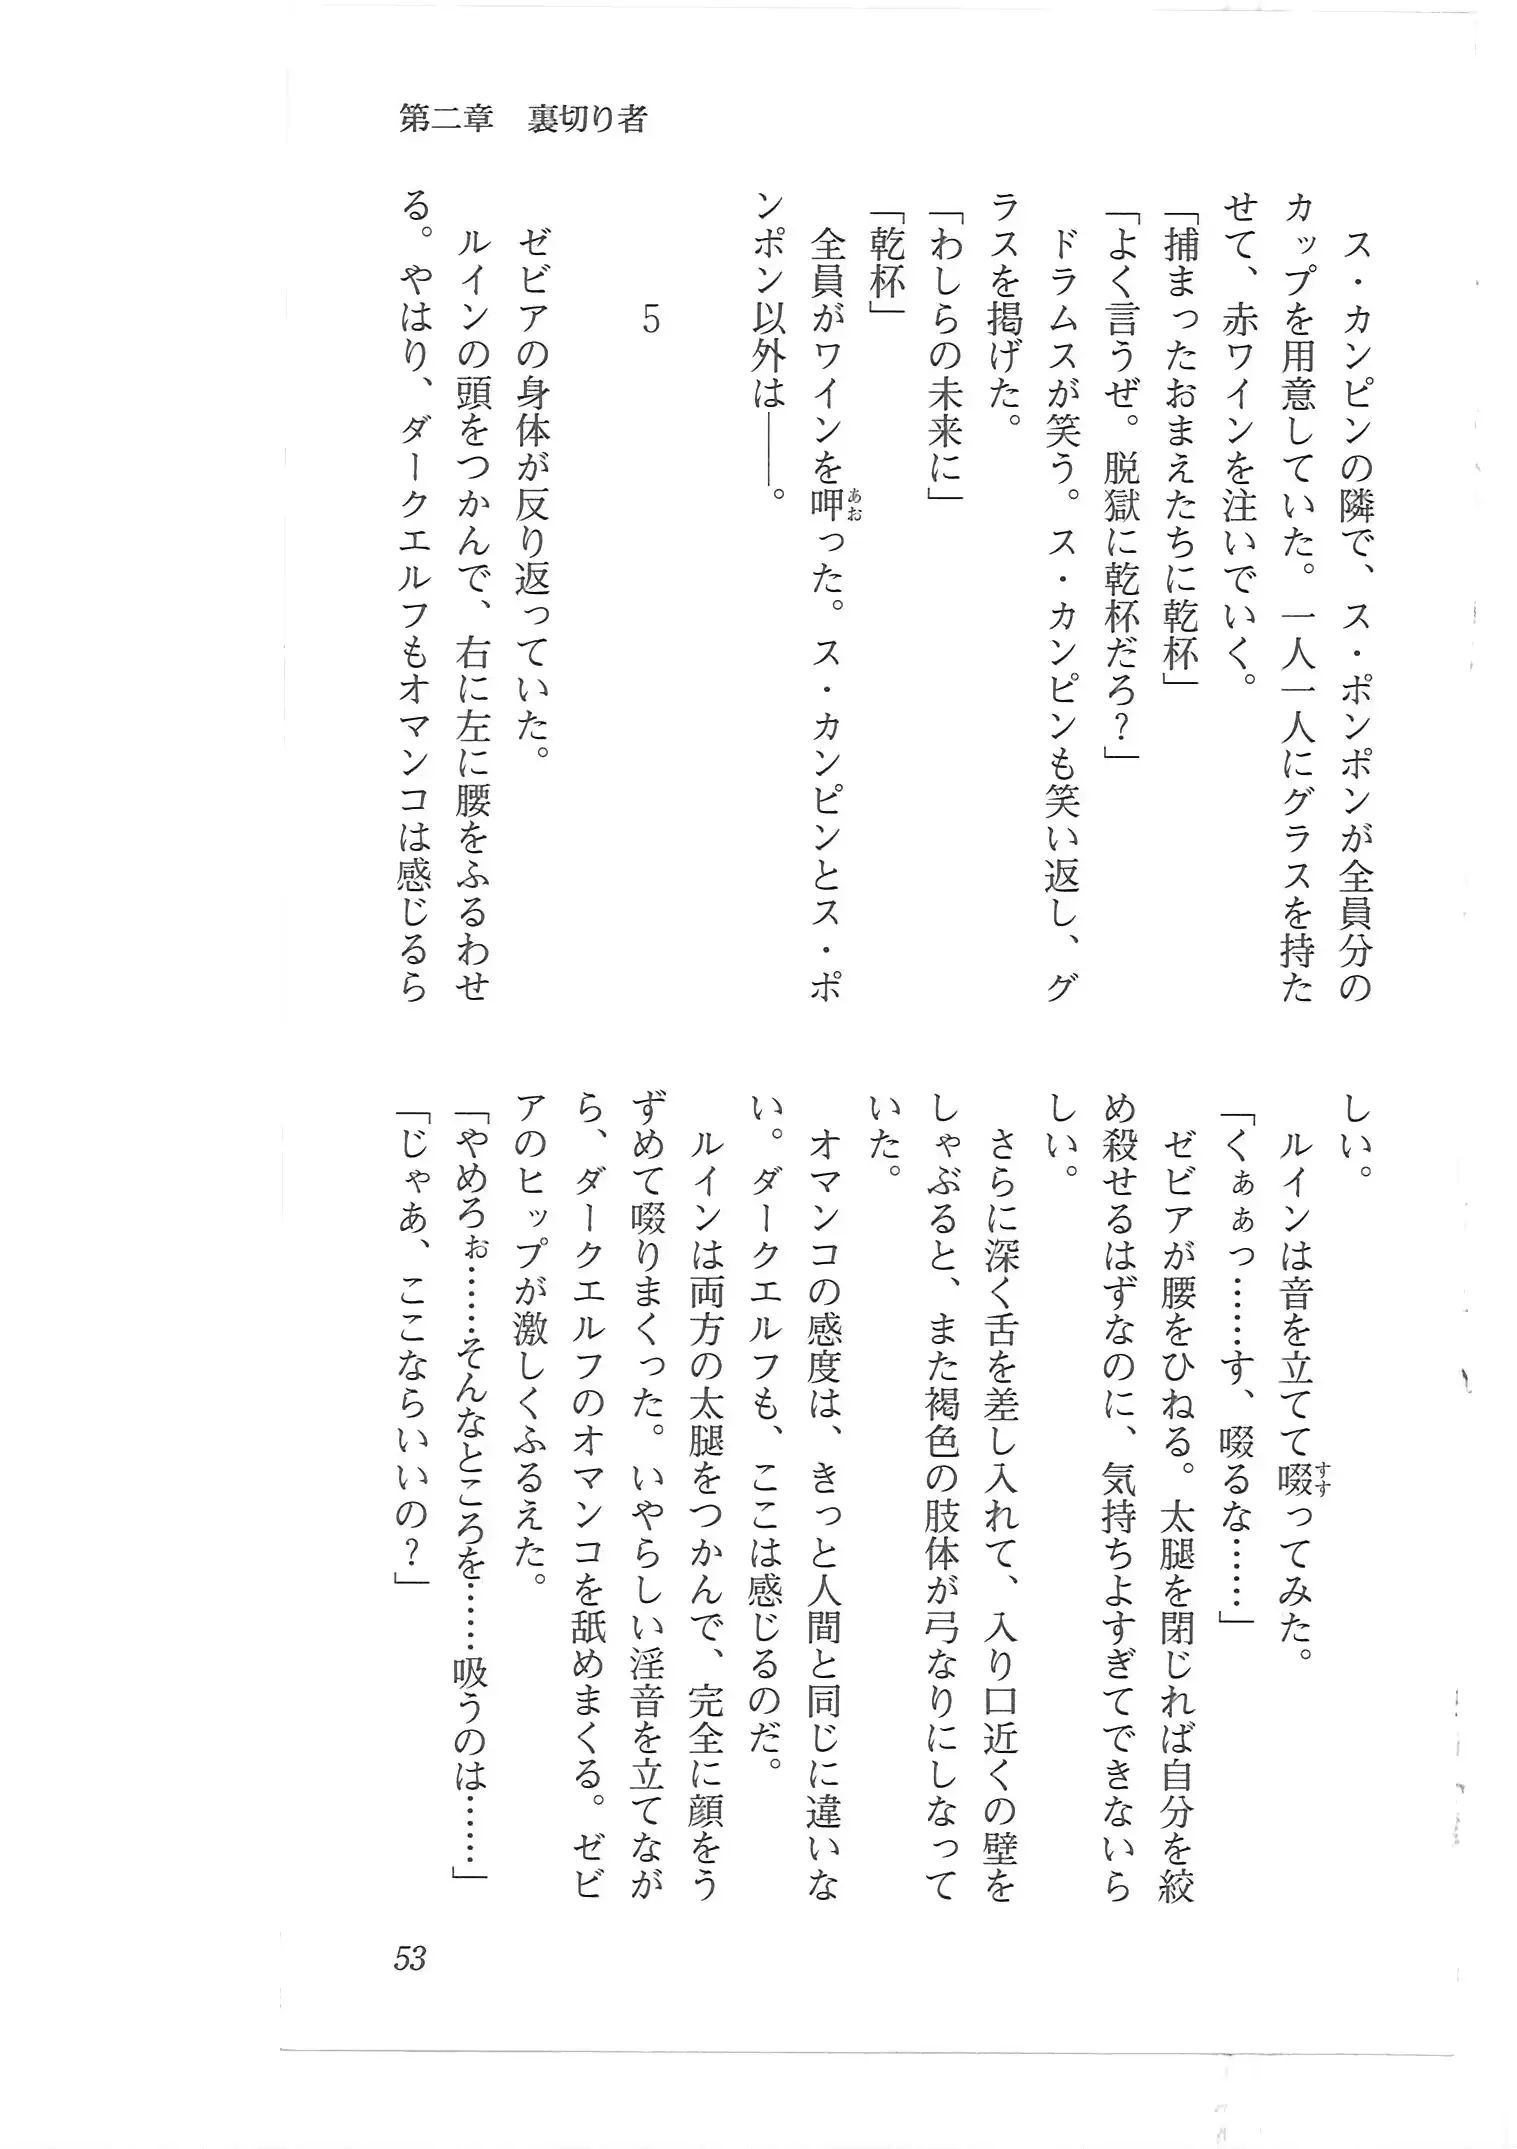 第二章　裏切り者
ス・カンピンの隣で、ス・ポンポンが全員分の
カップを用意していた。一人一人にグラスを持た
せて、赤ワインを注いでいく。
「捕まったおまえたちに乾杯」
「よく言うぜ。脱獄に乾杯だろ？」
ドラムスが笑う。ス・カンピンも笑い返し、グ
ラスを掲げた。
「わしらの未来に」
「乾杯」
全員がワインを呷った。ス・カンピンとス・ポ
ンポン以外は――。
5
ゼビアの身体が反り返っていた。
ルインの頭をつかんで、右に左に腰をふるわせ
る。やはり、ダークエルフもオマンコは感じるら
しい。
ルインは音を立てて啜ってみた。
「くぁぁっ……す、啜るな……」
ゼビアが腰をひねる。太腿を閉じれば自分を絞
め殺せるはずなのに、気持ちよすぎてできないら
しい。
さらに深く舌を差し入れて、入り口近くの壁を
しゃぶると、また褐色の肢体が弓なりにしなって
いた。
オマンコの感度は、きっと人間と同じに違いな
い。ダークエルフも、ここは感じるのだ。
ルインは両方の太腿をつかんで、完全に顔をう
ずめて啜りまくった。いやらしい淫音を立てなが
ら、ダークエルフのオマンコを舐めまくる。ゼビ
アのヒップが激しくふるえた。
「やめろぉ……そんなところを……吸うのは……」
「じゃあ、ここならいいの？」
53